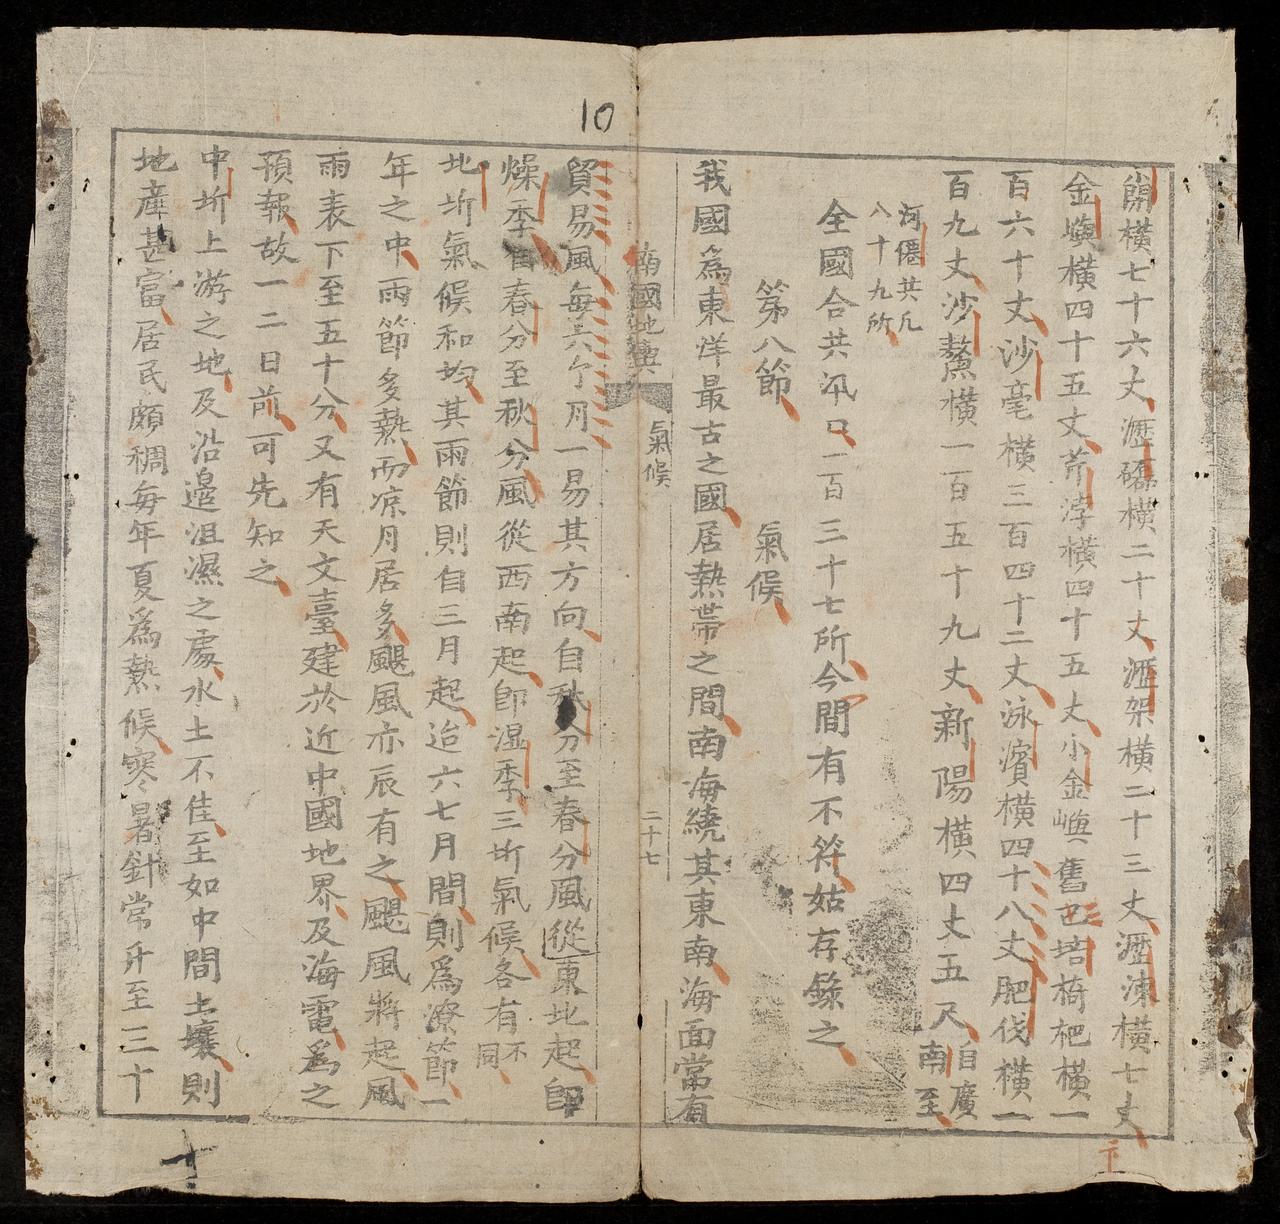 10
開橫七十六丈瀝磻橫二十丈瀝架橫二十三丈瀝涑橫七丈
金嶼橫四十五丈芹浡橫四十五丈小金嶼舊巴培椅杷橫一
百六十丈沙毫橫三百四十二丈泳濱橫四十八丈肥伐橫一
百九丈沙鰲橫一百五十九丈新陽橫四丈五尺自廣南至
河僊共凡八十九所
全國合共汛口二百三十七所今間有不符姑存錄之
第八節　氣候
我國為東洋最古之國居熱帯之間南海繞其東南海面當有
南國地輿　氣候　二十七
貿易風每六个月一易其方向自秋分至春分風從東北起即
燥季自春分至秋分風從西南起即湿季三圻氣候各有不同
北圻氣候和均其雨節則自三月起迨六七月間則為潦節一
年之中雨節多熱而凉月居多颶風亦辰有之颶風將起風
雨表下至五十分又有天文臺建於近中國地界及海電為之
預報故一二日前可先知之
中圻上游之地及沿邊沮濕之處水土不佳至如中間土壤則
地產甚富居民頗稠每年夏為熱候寒暑針常升至三十
十